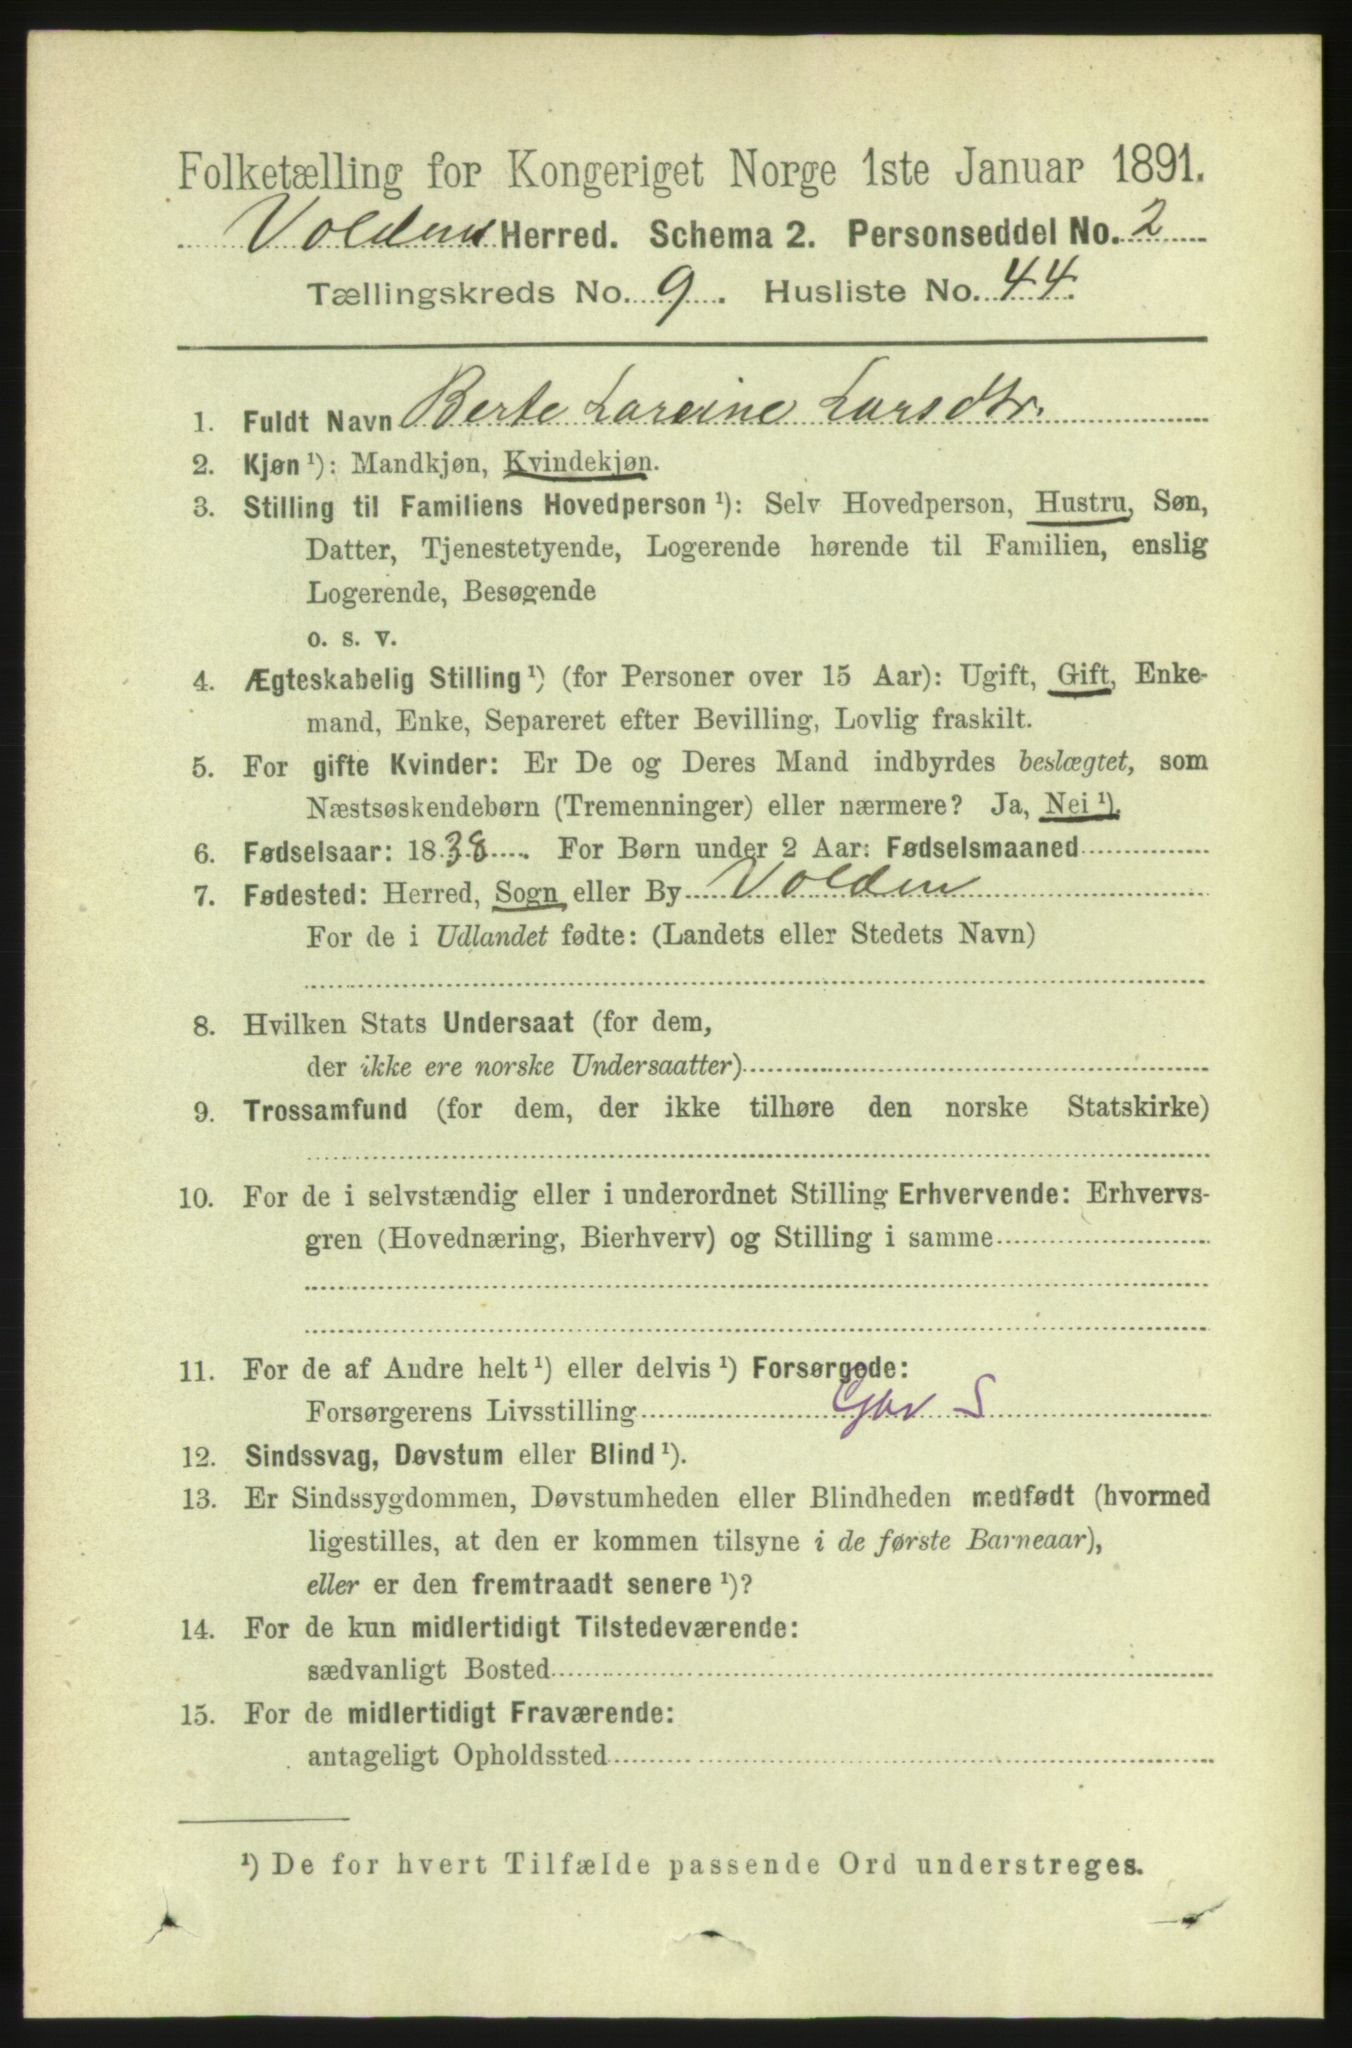 Folketælling for Kongeriget Norge 1ste Januar 1891.
Voldens Herred. Schema 2. Personseddel No. 2
Tællingskreds No. 9. Husliste No. 44.
1. Fuldt Navn Berte Lareine Larsdtr.
2. Kjøn ¹): Mandkjøn, Kvindekjøn.
3. Stilling til Familiens Hovedperson ¹): Selv Hovedperson, Hustru, Søn,
Datter, Tjenestetyende, Logerende hørende til Familien, enslig
Logerende, Besøgende
o. s. v.
4. Ægteskabelig Stilling ¹) (for Personer over 15 Aar): Ugift, Gift, Enke-
mand, Enke, Separeret efter Bevilling, Lovlig fraskilt.
5. For gifte Kvinder: Er De og Deres Mand indbyrdes beslægtet, som
Næstsøskendebørn (Tremenninger) eller nærmere? Ja, Nei ¹).
6. Fødselsaar: 1838. For Børn under 2 Aar: Fødselsmaaned
7. Fødested: Herred, Sogn eller By Volden
For de i Udlandet fødte: (Landets eller Stedets Navn)
8. Hvilken Stats Undersaat (for dem,
der ikke ere norske Undersaatter)
9. Trossamfund (for dem, der ikke tilhøre den norske Statskirke)
10. For de i selvstændig eller i underordnet Stilling Erhvervende: Erhvervs-
gren (Hovednæring, Bierhverv) og Stilling i samme
11. For de af Andre helt ¹) eller delvis ¹) Forsørgede:
Forsørgerens Livsstilling Gbr S
12. Sindssvag, Døvstum eller Blind ¹).
13. Er Sindssygdommen, Døvstumheden eller Blindheden medfødt (hvormed
ligestilles, at den er kommen tilsyne i de første Barneaar),
eller er den fremtraadt senere ¹)?
14. For de kun midlertidigt Tilstedeværende:
sædvanligt Bosted
15. For de midlertidigt Fraværende:
antageligt Opholdssted
¹) De for hvert Tilfælde passende Ord understreges.